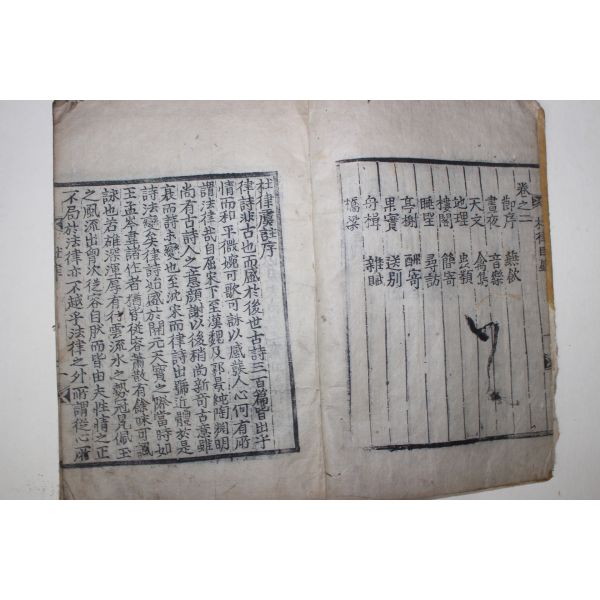 卷之二
御序 燕飲
晝夜 音樂
天文 禽獸
地理 虫類
樓閣 簡寄
眺望 尋訪
亭榭 酬寄
果實 送別
舟楫 雜賦
橋梁
杜律虞註序
律詩非古也而盛於後世古詩三百篇皆出乎
情而和平微婉可歌可詠以感發人心何有所
謂法律哉自屈宋下至漢魏及郭景純陶淵明
尚有古詩人之意顔謝以後稍尚新奇古意雖
衰而詩未變也至沈宋而律詩出號近體於是
詩法變矣律詩始盛於開元天寶之際當時如
王孟岑韋諸作者猶皆從容蕭散有餘味可諷
詠也若雄深渾厚有行雲流水之勢冠冕佩玉
之風流出胷次從容自然而皆由夫性情之正
不局於法律亦不越乎法律之外所謂從心所